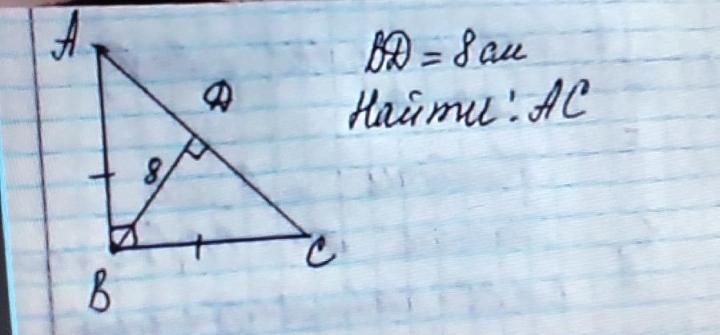 A
D
BD = 8 см
Найти: AC
8
B
C